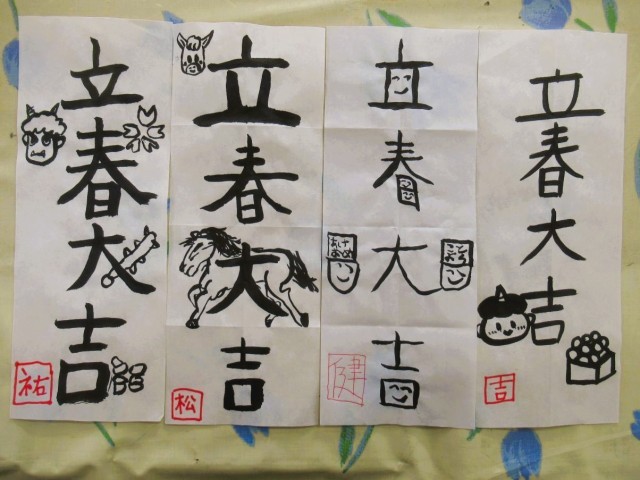 立春大吉
祐
立春大吉
松
立春大吉
あけ
おめ
健
立春大吉
吉